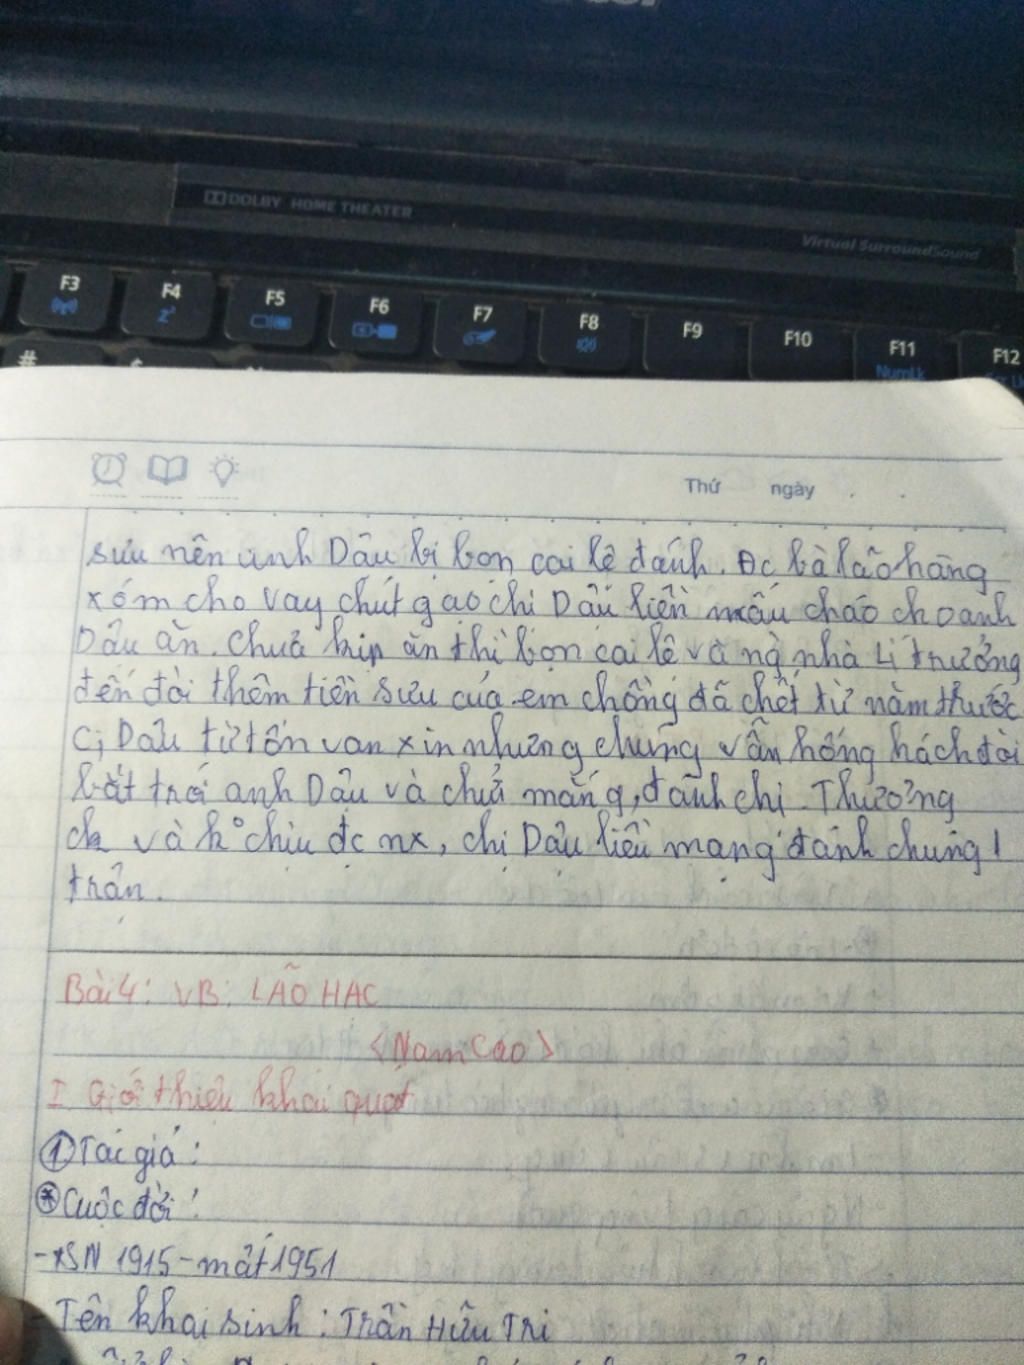 DOLBY HOME THEATER
Virtual SurroundSound
F3 F4 F5 F6 F7 F8 F9 F10 F11 F12
NumLk
#
Thứ ngày
sưu nên anh Dậu bị bọn cai lệ đánh. Đc bà lão hàng
xóm cho vay chút gạo chị Dậu liền nấu cháo cho anh
Dậu ăn. Chưa kịp ăn thì bọn cai lệ và ng nhà Lí trưởng
đến đòi thêm tiền sưu của em chồng đã chết từ năm trước
Dậu từ tốn van xin nhưng chúng vẫn hống hách đòi
bắt trói anh Dậu và chửi mắng, đánh chị. Thương
ck và k° chịu đc nx, chị Dậu liều mạng đánh chúng 1
trận.
Bài 4: VB: LÃO HẠC
<Nam Cao>
I Giới thiệu khái quát
① Tác giả:
* Cuộc đời:
- SN 1915 - mất 1951
- Tên khai sinh: Trần Hữu Tri